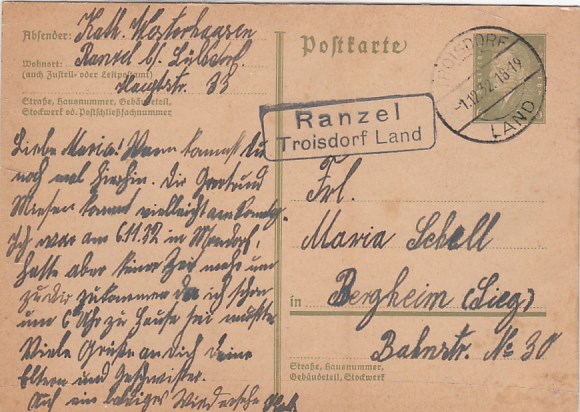 Absender: Kath. Klosterhalfen
Wohnort: Ranzel b/. Lülsdorf.
(auch Zustell- oder Leitpostamt)
Hauptstr. 33
Straße, Hausnummer, Gebäudeteil,
Stockwerk od. Postschließfachnummer
Postkarte
TROISDORF
-1.12.32.18-19
LAND
Ranzel
Troisdorf Land
Liebe Maria! Wann kommst du
noch mal hierhin. Die Gertrud
kommt vielleicht am Sonntag.
Ich war am 6.11.32 in Mondorf,
hatte aber keine Zeit mehr um
zu dir zukommen da ich schon
um 6 Uhr zu Hause sei mußte
Viele Grüße an dich deine
Eltern und Geschwister.
Auf ein baldiges Wiedersehe Kath
Frl.
Maria Schell
in Bergheim (Sieg)
Bahnstr. № 30
Straße, Hausnummer,
Gebäudeteil, Stockwerk